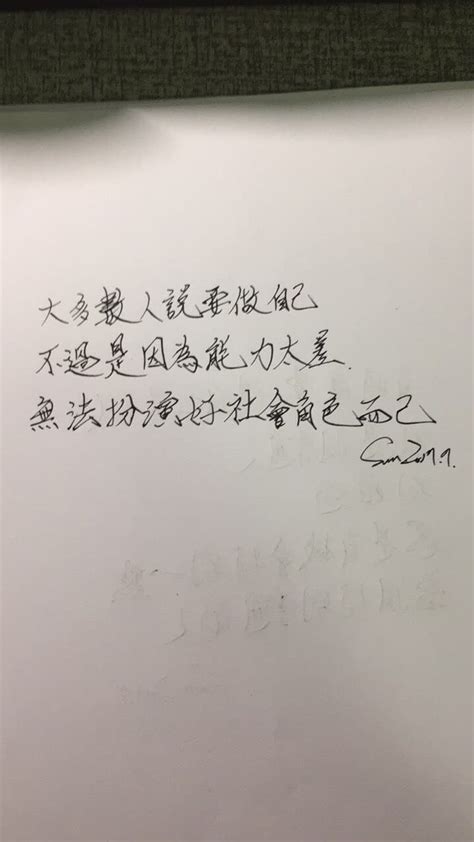 大多數人說要做自己
不過是因為能力太差.
無法扮演好社會角色而己
Sun 2019.9.